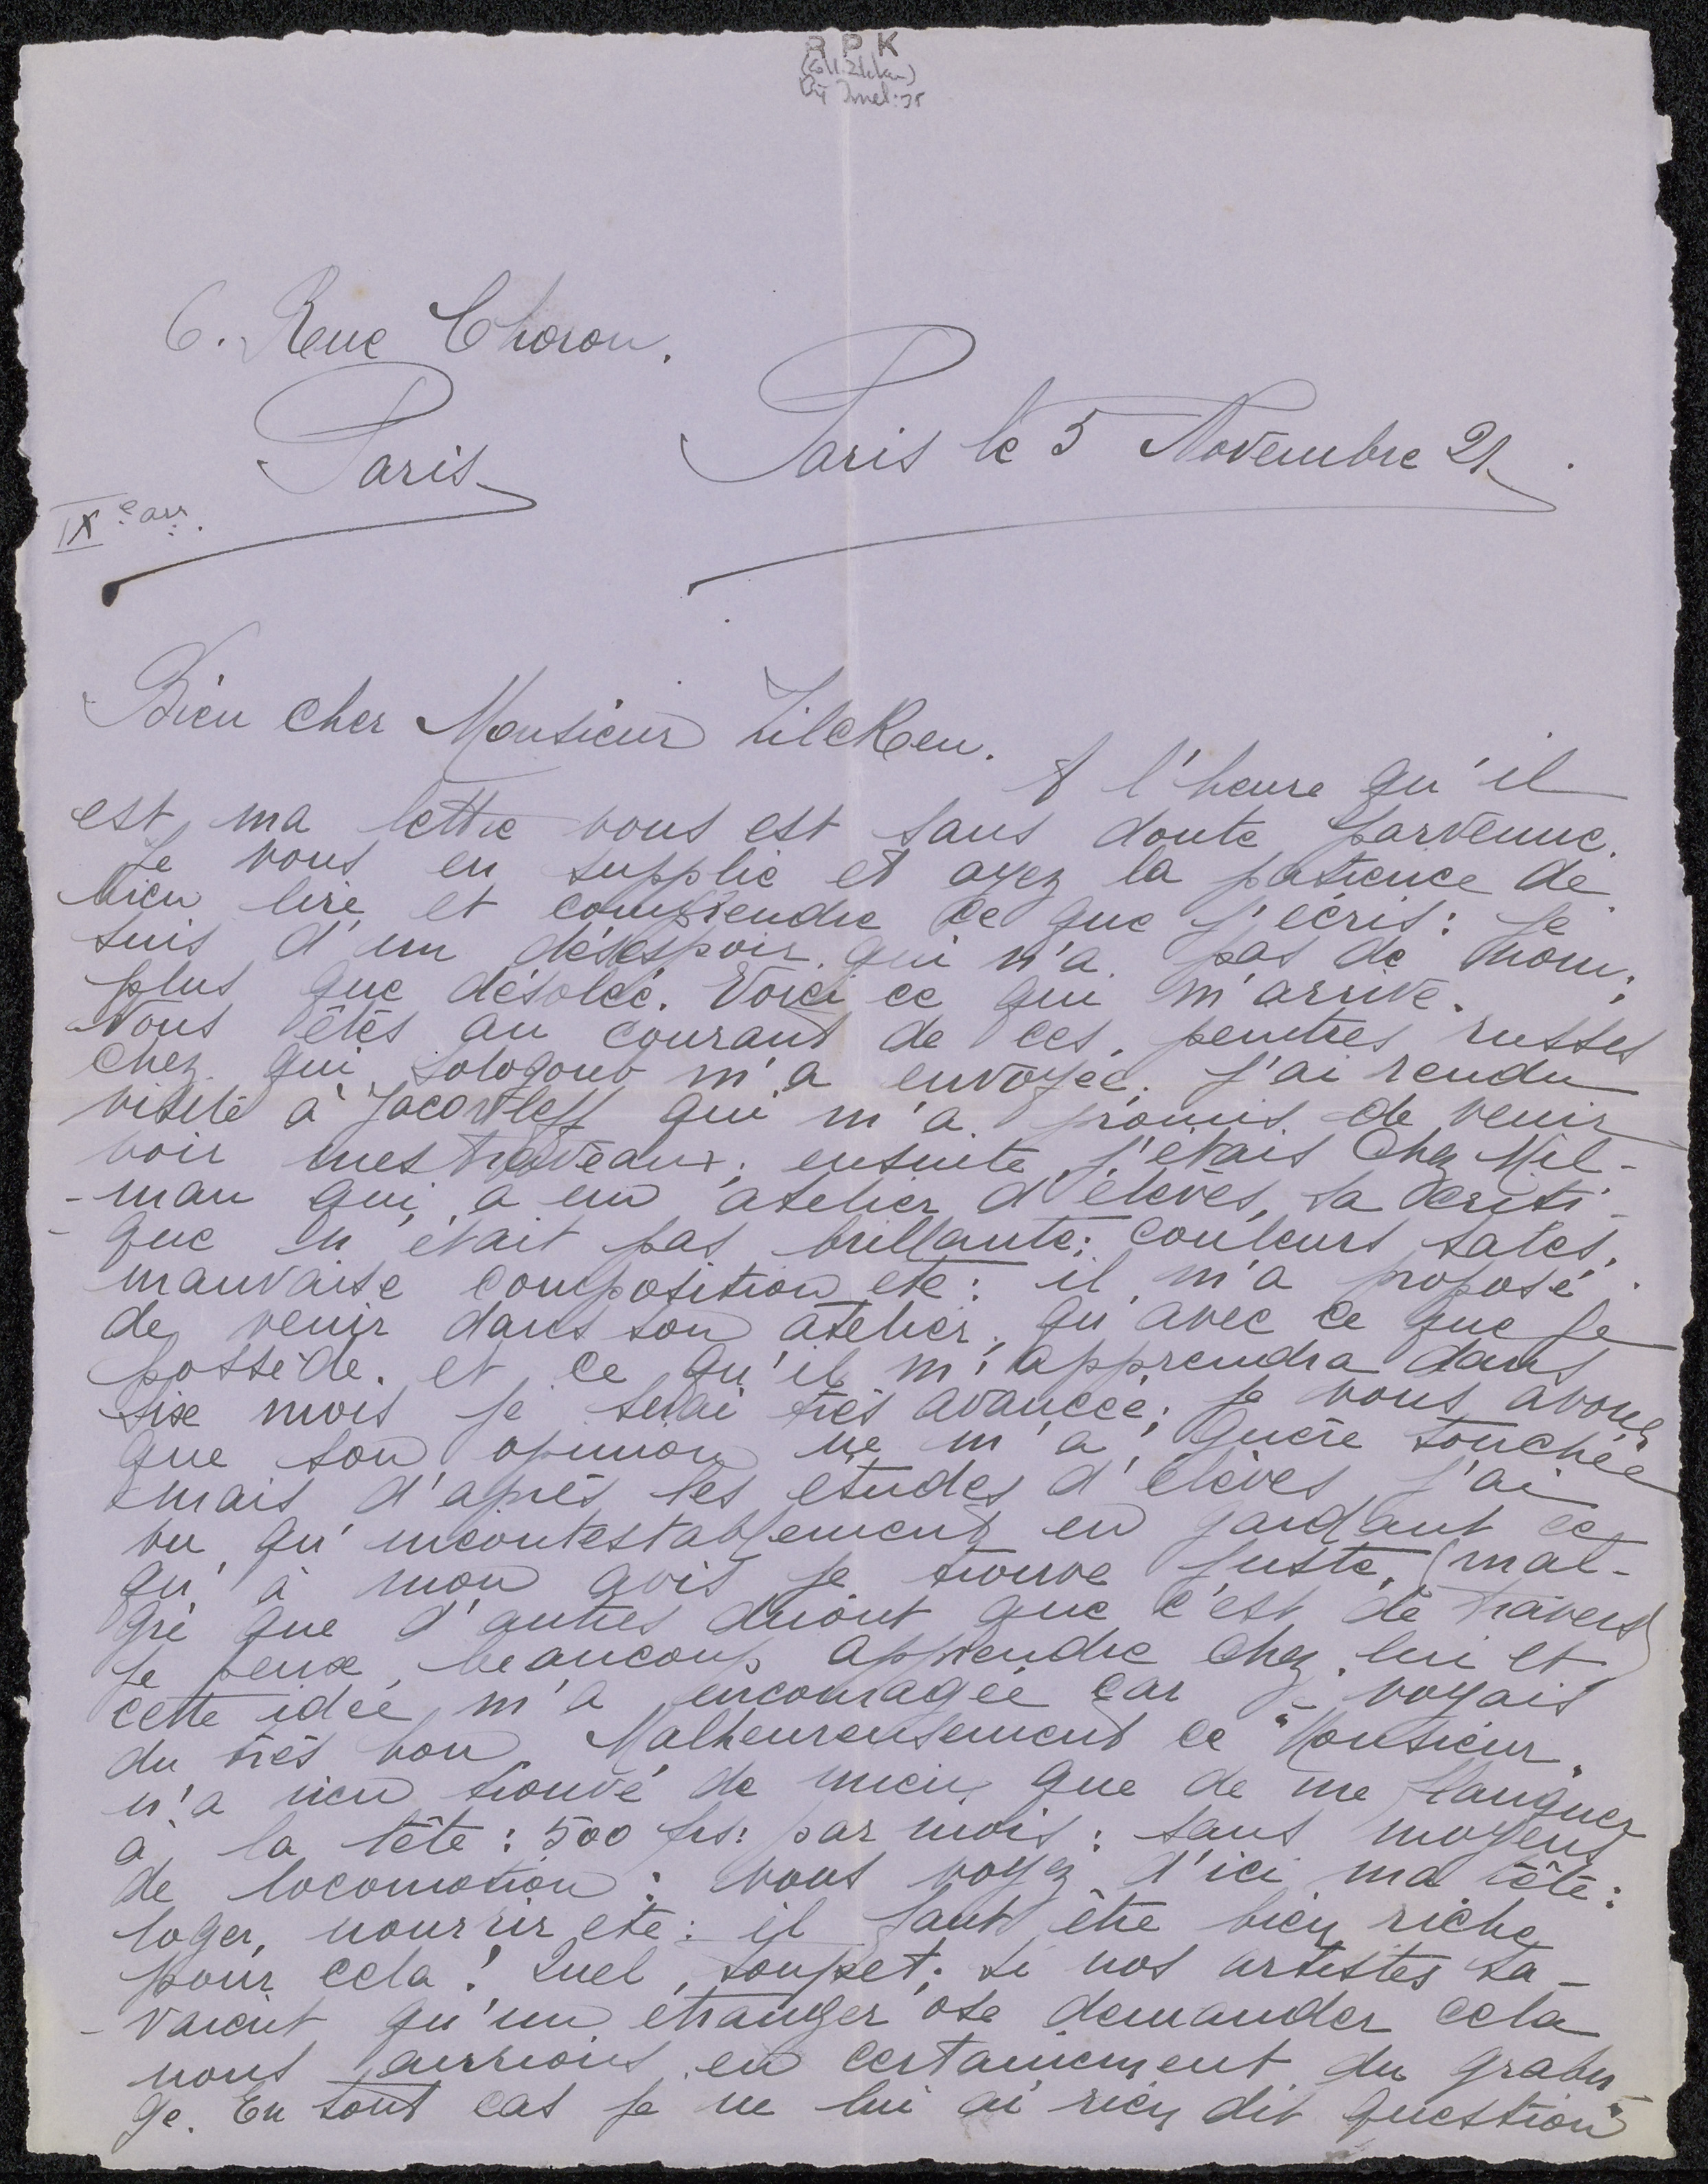 R P K
6. Rue Choron.
Paris
IX e arr.
Paris le 5 Novembre 21.
Bien cher Monsieur Zilcken.
A l'heure qu'il
est, ma lettre vous est sans doute parvenue.
Je vous en supplie et ayez la patience de
bien lire et comprendre ce que j'écris: je
suis d'un désespoir qui n'a pas de nom;
plus que désolée. Voici ce qui m'arrive.
Vous êtes au courant de ces peintres russes
chez qui Sologoub m'a envoyée. J'ai rendu
visite à Jacovleff qui m'a promis de venir
voir mes traveaux; ensuite j'étais chez Mil-
-man qui a un atelier d'élèves, sa criti-
-que n'était pas brillante: couleurs sales,
mauvaise composition etc: il m'a proposé
de venir dans son atelier. qu'avec ce que je
possède. et ce qu'il m'apprendra dans
six mois je serai très avancée; je vous avoue
que son opinion ne m'a guère touchée
mais d'après les études d'élèves j'ai
vu qu'incontestablement en gardant ce
qu'à mon avis je trouve juste, (mal-
gré que d'autres diront que c'est de travers)
je peux beaucoup apprendre chez lui et
cette idée m'a encouragée car je voyais
du très bon. Malheureusement ce "Monsieur"
n'a rien trouvé de mieux que de me flanquer
à la tête: 500 frs: par mois: sans moyens
de locomotion: vous voyez d'ici ma tête:
loger, nourrir etc: il faut être bien riche
pour cela! Quel toupet; si nos artistes sa-
-vaient qu'un étranger ose demander cela
nous aurrions eu certainement du grabu-
ge. En tout cas je ne lui ai rien dit question